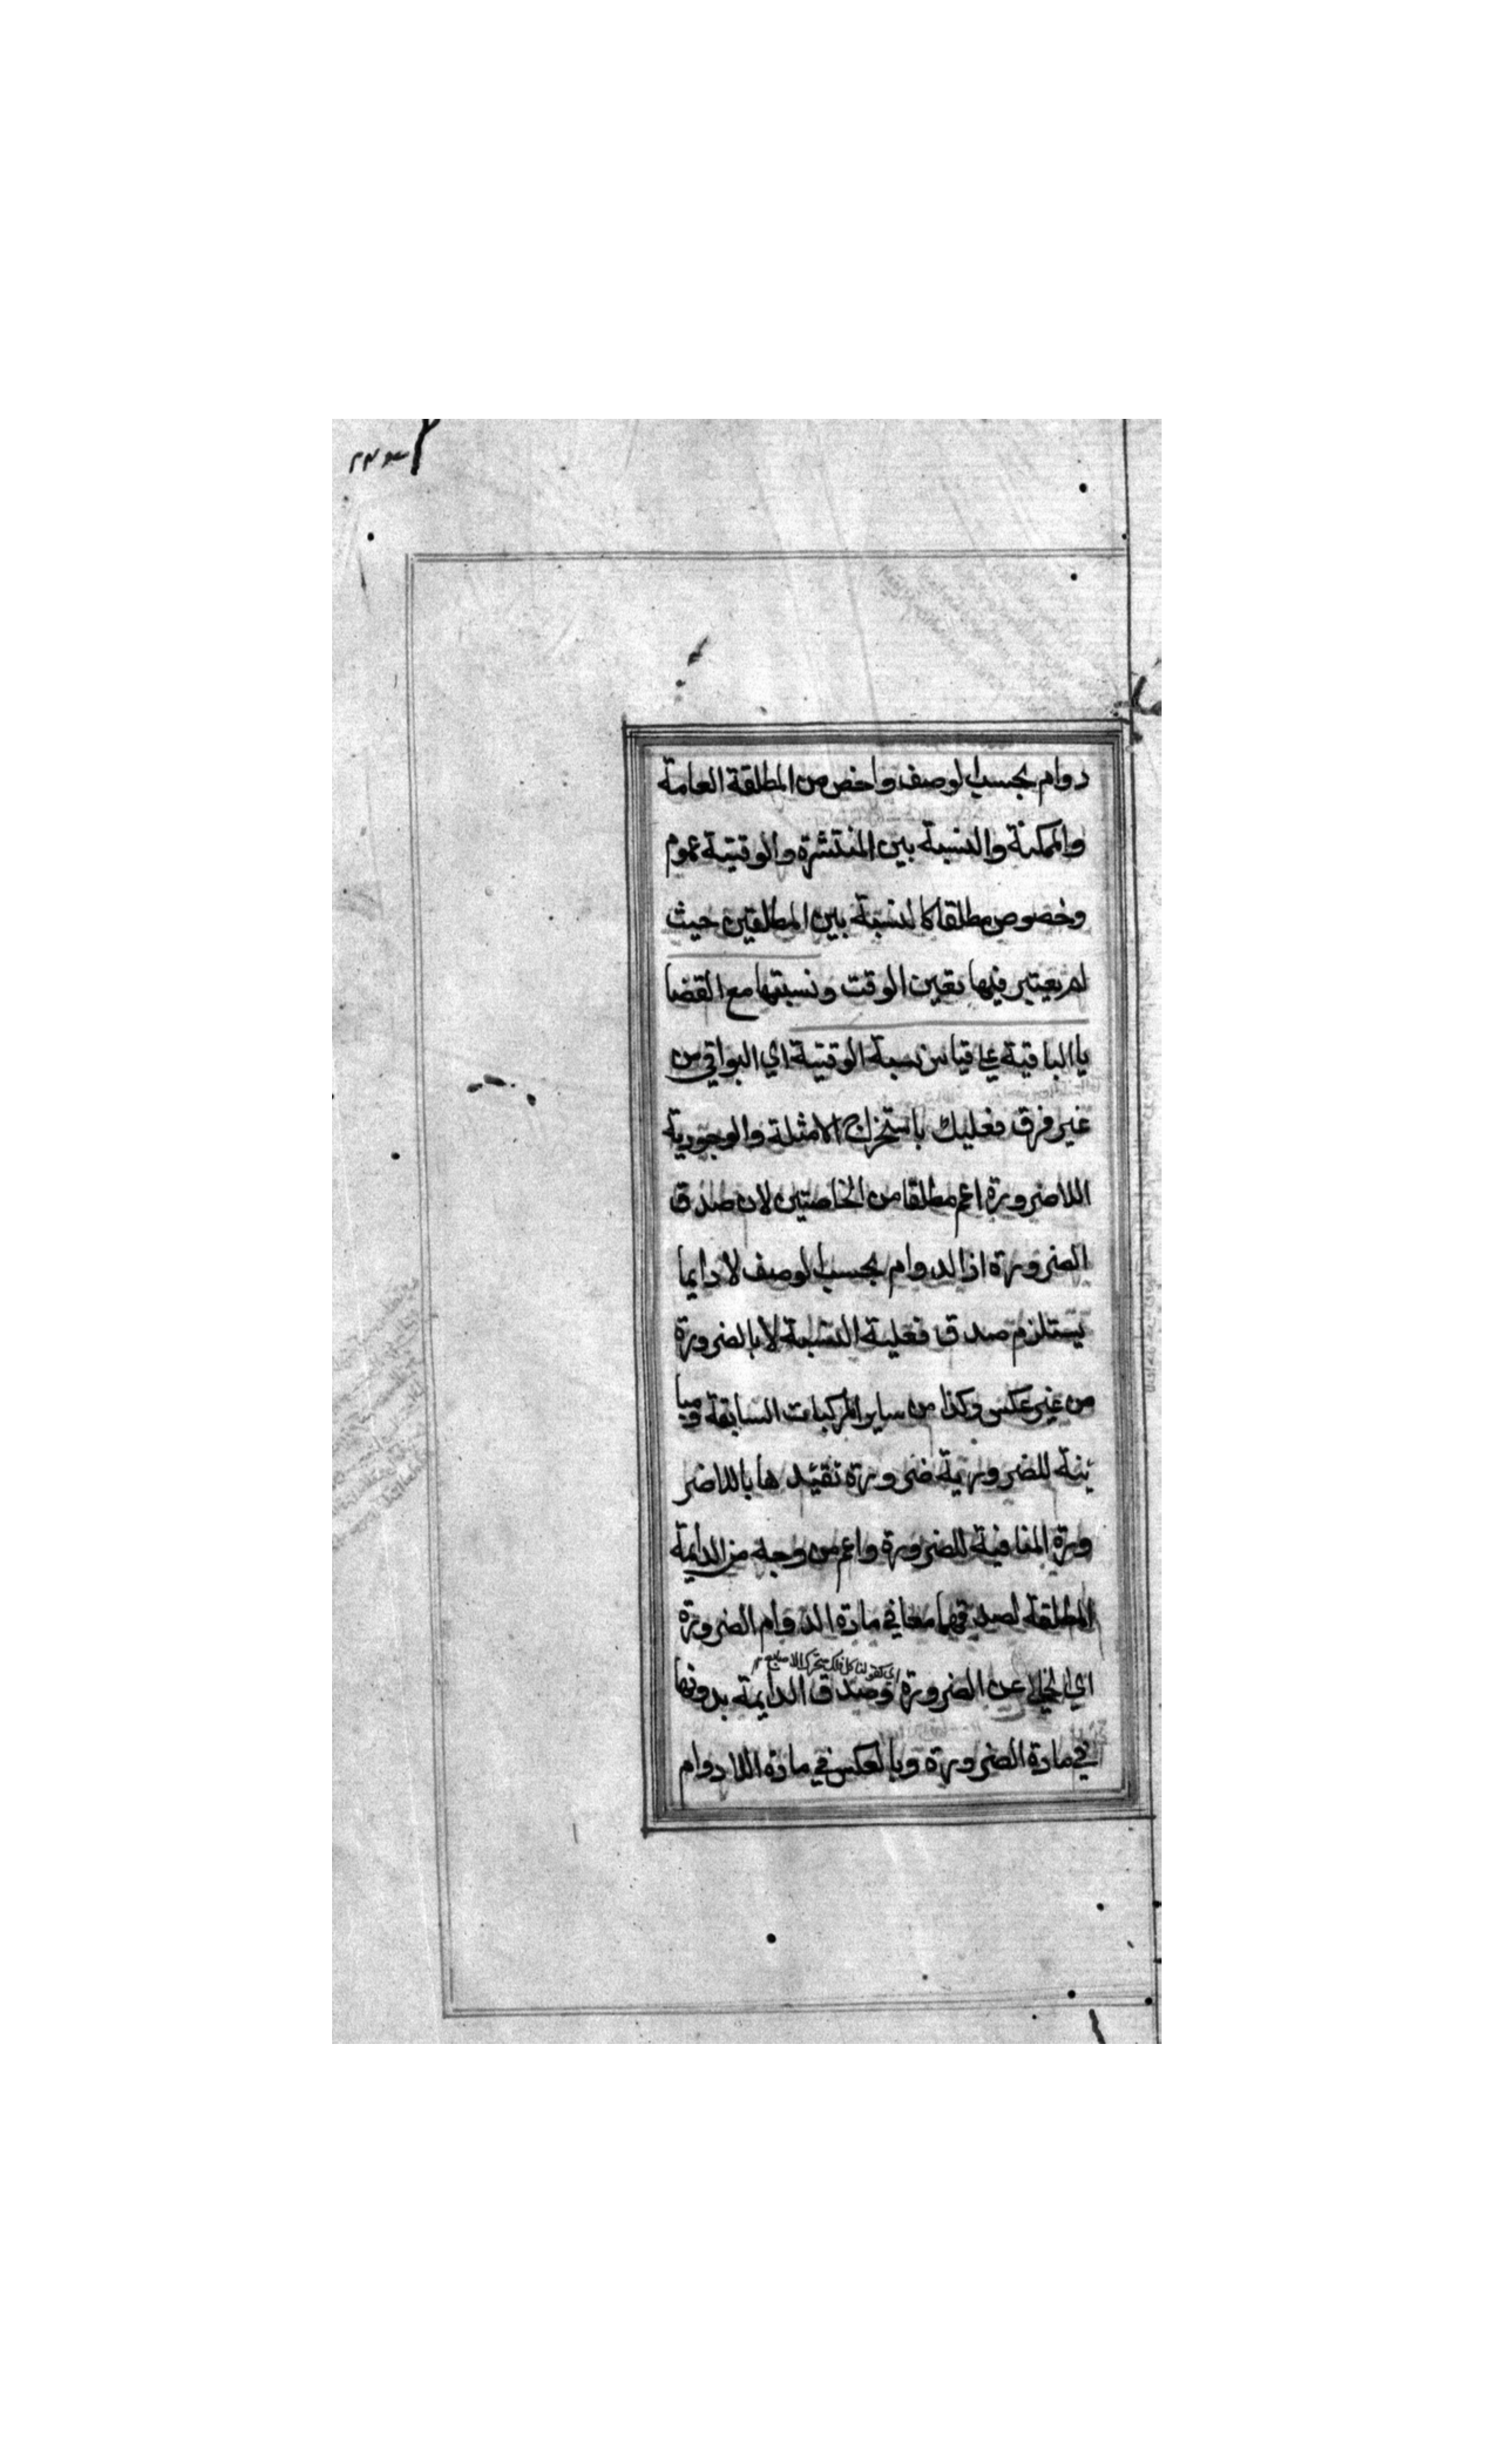 دوام بحسب الوصف واخص من المطلقة العامة
والممكنة والنسبة بين المنتشرة والوقتية عموم
وخصوص مطلقا كالنسبة بين المطلقتين حيث
لم يعتبر فيها تعين الوقت ونسبتها مع القضا
يا الباقية على قياس نسبة الوقتية اي البواقي من
غير فرق فعليك باستخراج الامثلة والوجودية
اللاضرورة اعم مطلقا من الخاصتين لان صدق
الضرورة اذ الدوام بحسب الوصف لا دايما
يستلزم صدق فعلية النسبة لا بالضرورة
من غير عكس وكذا من ساير المركبات السابقة ومبا
ينة للضرورية ضرورة تقيد ها باللاضر
ورة المنافية للضرورة واعم من وجه من الدايمة
المطلقة لصدقهما معا في مادة الدوام الضرورة
اي كقولنا كل فلك متحرك
اي الخالي عن الضرورة وصدق الدايمة بدونها
في مادة الضرورة وبالعكس في مادة اللا دوام